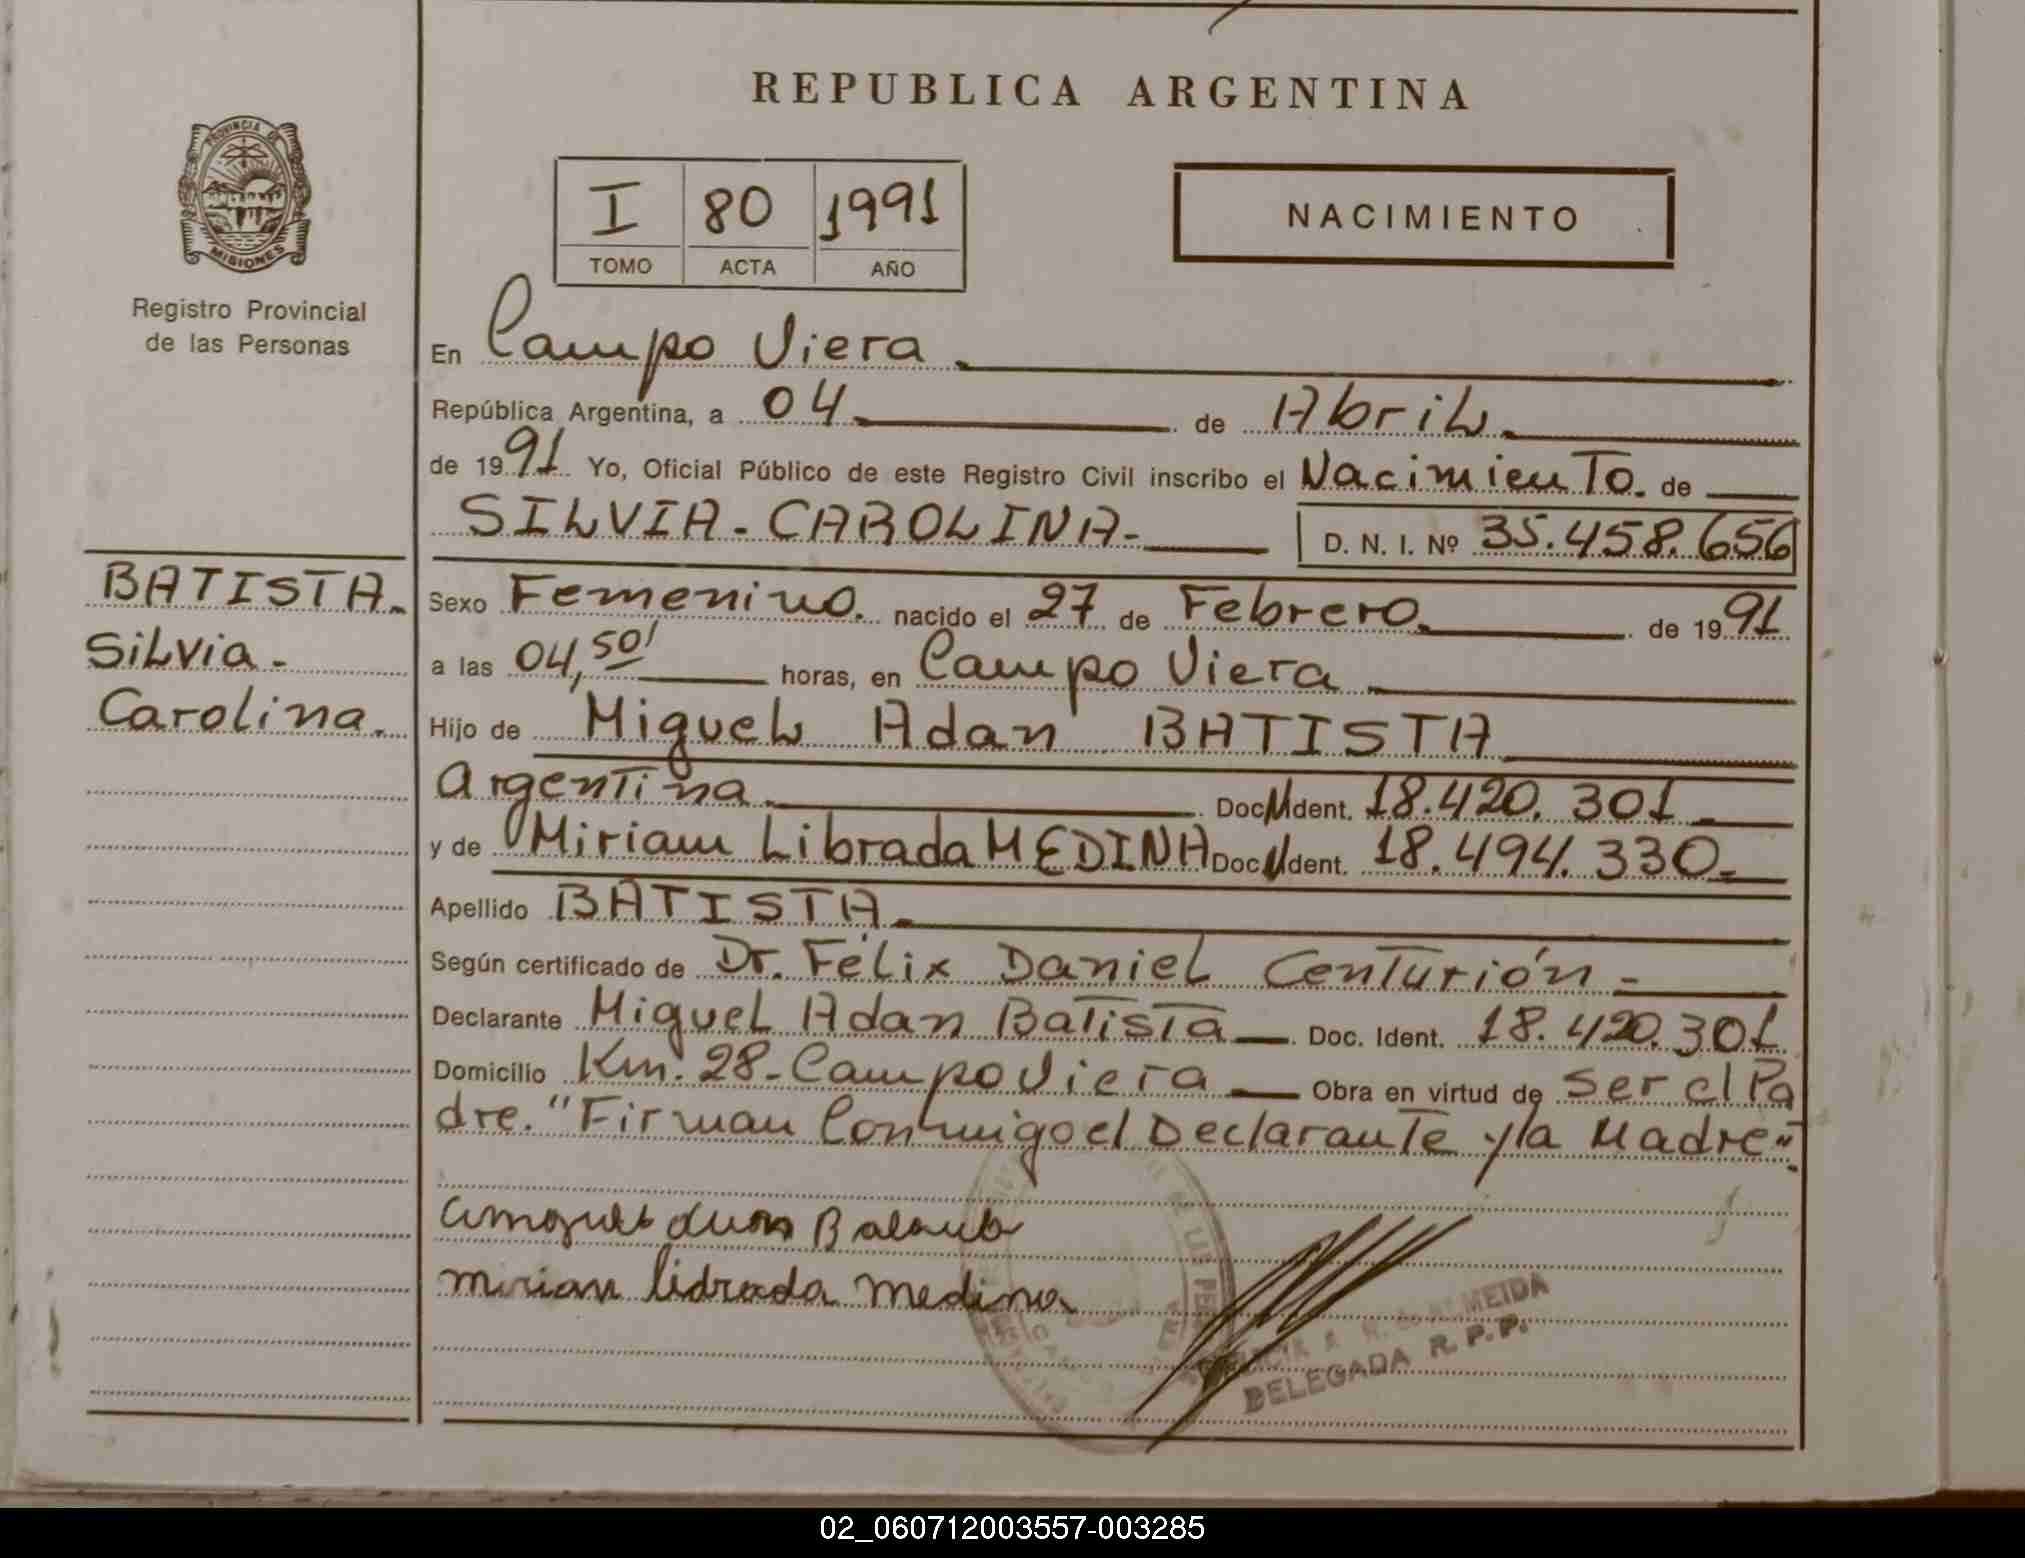 REPUBLICA ARGENTINA
PROVINCIA DE
MISIONES
Registro Provincial
de las Personas
I 80 1991
TOMO ACTA AÑO
NACIMIENTO
En Campo Viera.
República Argentina, a 04 de Abril.
de 1991 Yo, Oficial Público de este Registro Civil inscribo el Nacimiento. de
SILVIA-CAROLINA- D. N. I. Nº 35.458.656
BATISTA.
Silvia-
Carolina.
Sexo Femenino. nacido el 27 de Febrero. de 1991
a las 04,50' horas, en Campo Viera
Hijo de Miguel Adan BATISTA
Argentina. Doc. Ident. 18.420.301
y de Miriam Librada MEDINA Doc. Ident. 18.494.330-
Apellido BATISTA.
Según certificado de Dr. Félix Daniel Centurión-
Declarante Miguel Adan Batista Doc. Ident. 18.420.301
Domicilio Km. 28-Campo Viera Obra en virtud de ser el Pa
dre. "Firman Conmigo el Declarante y la Madre".
mirian librada medina
ALMEIDA
DELEGADA R. P. P.
02_060712003557-003285